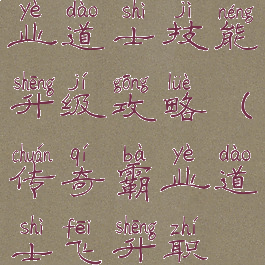 yè dào shì jì néng
业道士技能
shēng jí gōng lüè
升级攻略（
chuán qí bà yè dào
传奇霸业道
shì fēi shēng zhí
士飞升职